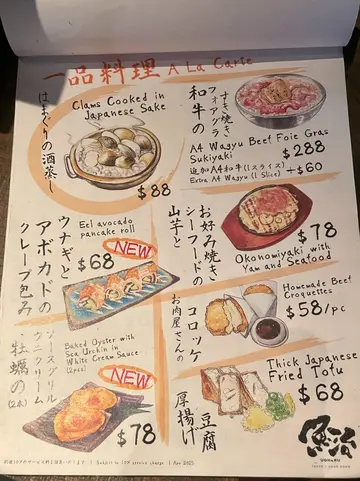 一品料理 A La Carte
はまぐりの酒蒸し
Clams Cooked in
Japanese Sake
$88
すき焼き
フォアグラ
和牛の
A4 Wagyu Beef Foie Gras
Sukiyaki
$288
追加A4和牛(1スライス)
Extra A4 Wagyu (1 Slice)
+$60
ウナギと
アボカドの
クレープ包み
Eel avocado
pancake roll
$68
NEW
お好み焼き
シーフードの
山芋と
$78
Okonomiyaki with
Yam and Seafood
Homemade Beef
Croquettes
$58/pc
お肉屋さんの
コロッケ
ソースグリル
ウニクリーム
牡蠣の(2本)
Baked Oyster with
Sea Urchin in
White Cream Sauce
(2pcs)
NEW
$78
Thick Japanese
Fried Tofu
$68
豆腐
厚揚げ
魚治
UOHARU
Subject to 10% service charge | Apr 2025